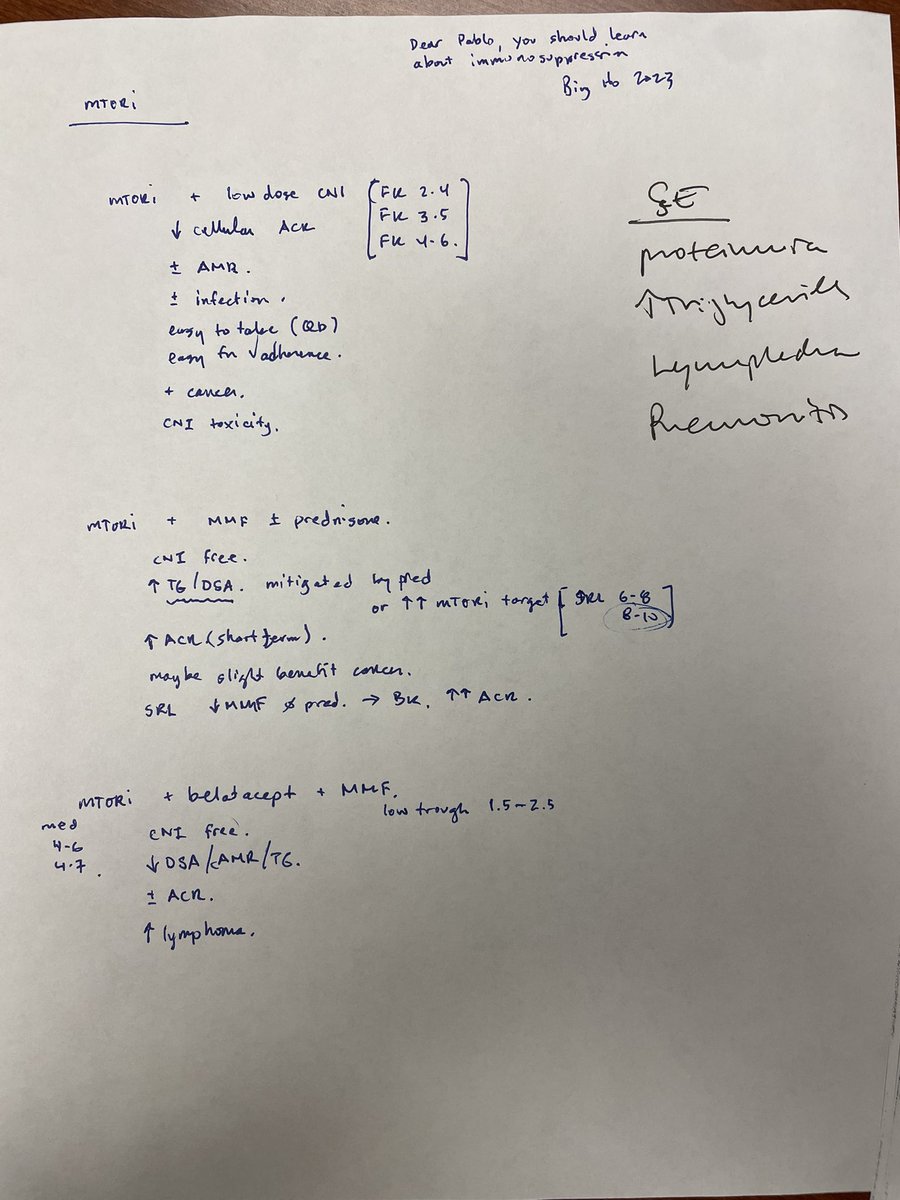 Dear Pablo, you should learn
about immunosuppression
Bing Ho 2023
MTORi
MTORi + low dose CNI [FK 2-4
FK 3-5
FK 4-6.]
↓ cellular ACR
± AMR.
± infection.
easy to take (QD)
easy for √adherence.
+ cancer.
CNI toxicity.
SE
proteinuria
↑Triglycerides
Lymphedema
Pneumonitis
MTORi + MMF ± prednisone.
CNI free.
↑ TG/DSA. mitigated by pred
or ↑↑ MTORi target [SRL 6-8
8-10]
↑ ACR (short term).
maybe slight benefit cancer.
SRL ↓MMF ø pred. → BK, ↑↑ ACR.
MTORi + belatacept + MMF.
low trough 1.5-2.5
med
4-6
4-7.
CNI free.
↓ DSA/cAMR/TG.
± ACR.
↑ lymphoma.